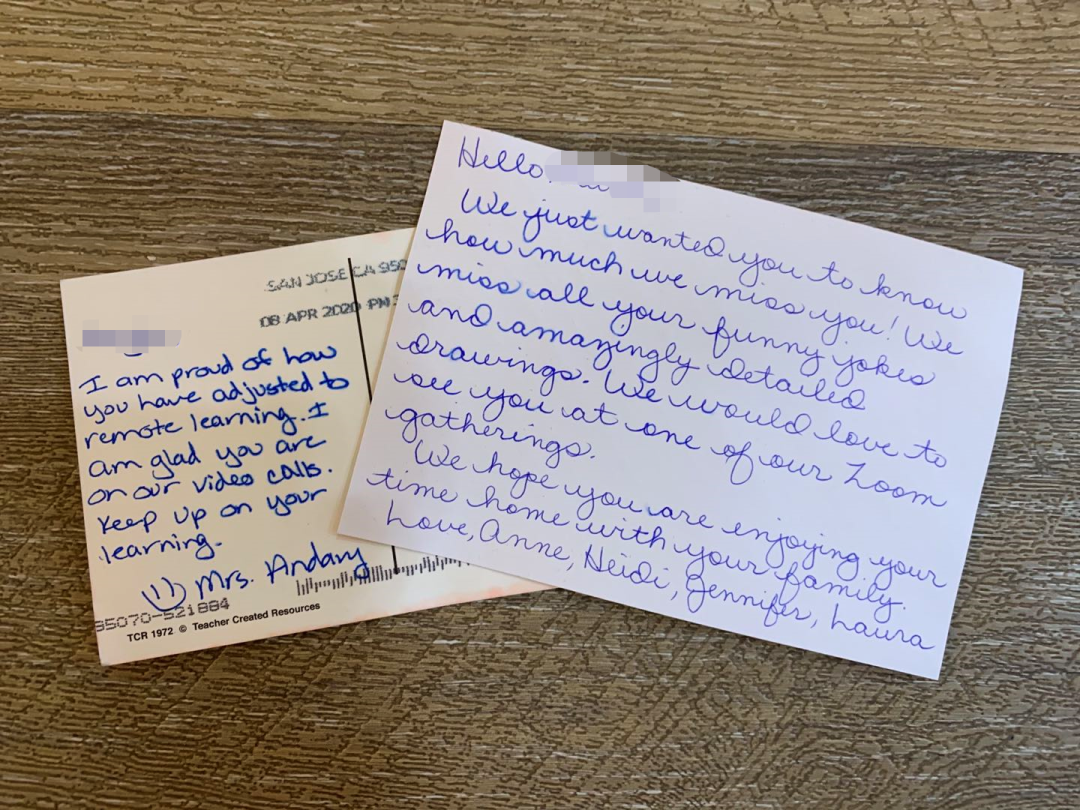 SAN JOSE CA 950
08 APR 2020 PM
I am proud of how
you have adjusted to
remote learning. I
am glad you are
on our video calls.
Keep up on your
learning.
Mrs. Andary
95070-521884
TCR 1972 © Teacher Created Resources
Hello
We just wanted you to know
how much we miss you! We
miss all your funny jokes
and amazingly detailed
drawings. We would love to
see you at one of our Zoom
gatherings.
We hope you are enjoying your
time home with your family.
Love, Anne, Heidi, Jennifer, Laura